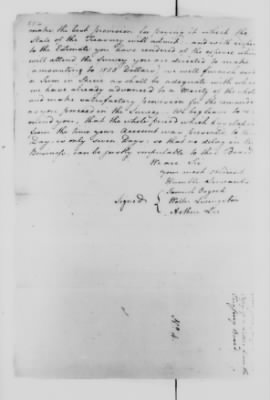 make the best provision for paying it which the
State of the Treasury will admit: and with respect
to the Estimate you have rendered of the expense which
will attend the Survey you are directed to make
amounting to 1835 Dollars; we will furnish such
a Sum in Specie as shall be adequate with what
we have already advanced to a Moiety of the whole
and make satisfactory provision for the remainder
as you proceed in the Survey. We beg leave to re-
mind you, that the whole period which has elapsed
from the time your Account was presented to this
Day, is only seven Days; so that no delay in the
Business, can be justly imputable to this Board
We are Sir
your most obedient
Humble Servants
Samuel Osgood
Signed Walter Livingston
Arthur Lee
No. 8
Treasury Board